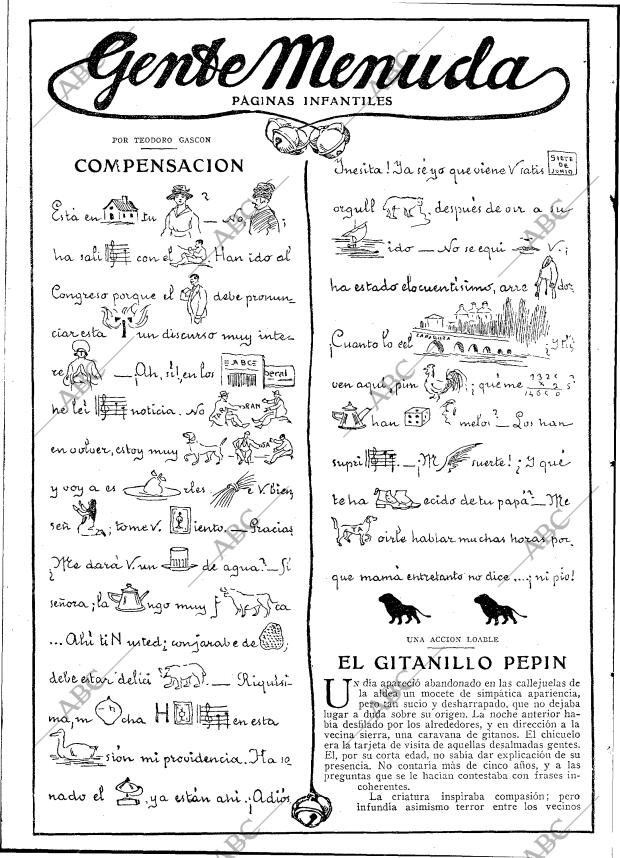 Gente Menuda
PÁGINAS INFANTILES
POR TEODORO GASCON
COMPENSACION
Está en tu ? — No ;
ha sali con el Han ido al
Congreso porque el debe pronun-
ciar esta un discurso muy inte-
re — ¡Ah, sí!, en los ABC Liberal
he leí noticia. No TAR RAN
en volver, estoy muy SA
y voy a es rles e V. bien,
señ ; tome V. iento. — Gracias
¿Me dará V. un de agua? — Sí
señora; la ngo muy f ca
... Ahí ti N usted; con jarabe de ;
debe estar delici . — Riquísi-
ma, m cha H en esta
sión mi providencia. Ha so-
nado el , ya están ahí. ¡Adiós
Inesita! Ya sé yo que viene V satis SIETE DE JUNIO
orgull , después de oir a su
ido — No se equi V. ;
ha estado elocuentísimo, arre dor.
¡Cuanto lo cel ZARAGOZA ! ¿Y ti
ven aquí, pim ; ¿qué me 7325 x 2 14650 s?
han melos? — Los han
supri . — ¡M suerte! ¿Y qué
te ha ecido de tu papá? — Me
TA oirle hablar muchas horas por-
que mamá entretanto no dice ... ¡ni pío!
UNA ACCION LOABLE
EL GITANILLO PEPIN
UN día apareció abandonado en las callejuelas de
la aldea un mocete de simpática apariencia,
pero tan sucio y desharrapado, que no dejaba
lugar a duda sobre su origen. La noche anterior ha-
bía desfilado por los alrededores, y en dirección a la
vecina sierra, una caravana de gitanos. El chicuelo
era la tarjeta de visita de aquellas desalmadas gentes.
El, por su corta edad, no sabía dar explicación de su
presencia. No contaría más de cinco años, y a las
preguntas que se le hacían contestaba con frases in-
coherentes.
La criatura inspiraba compasión; pero
infundía asimismo terror entre los vecinos